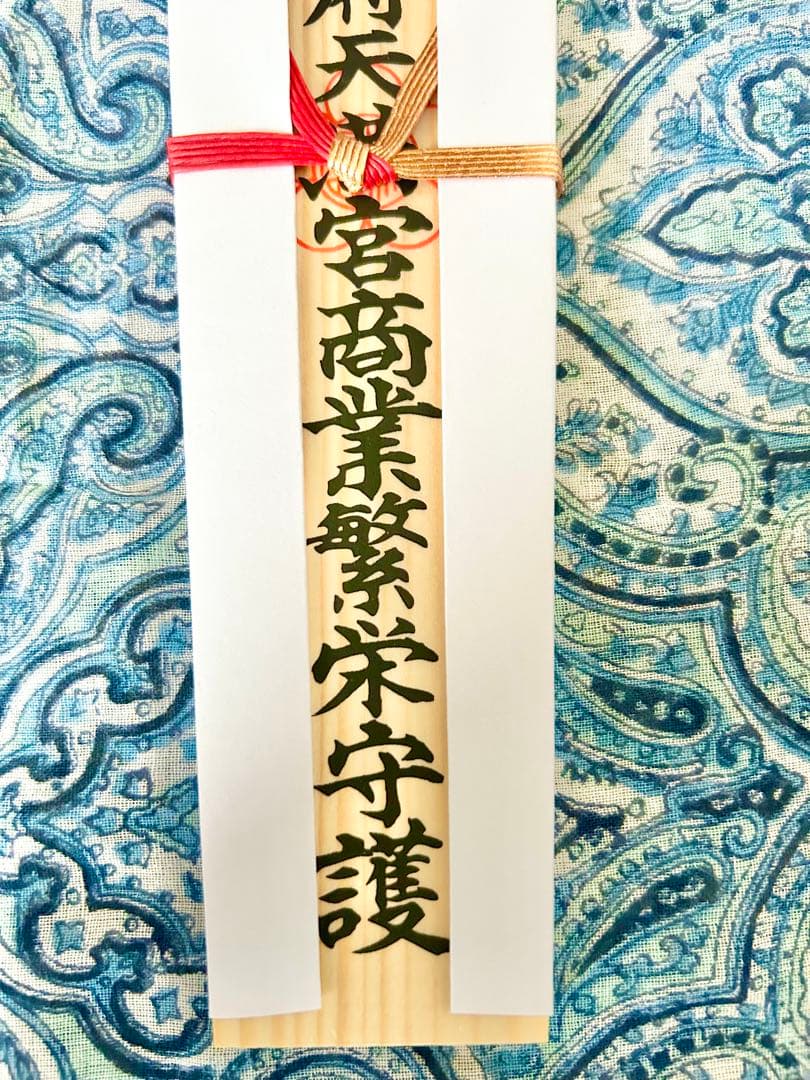 府天満宮商業繁栄守護